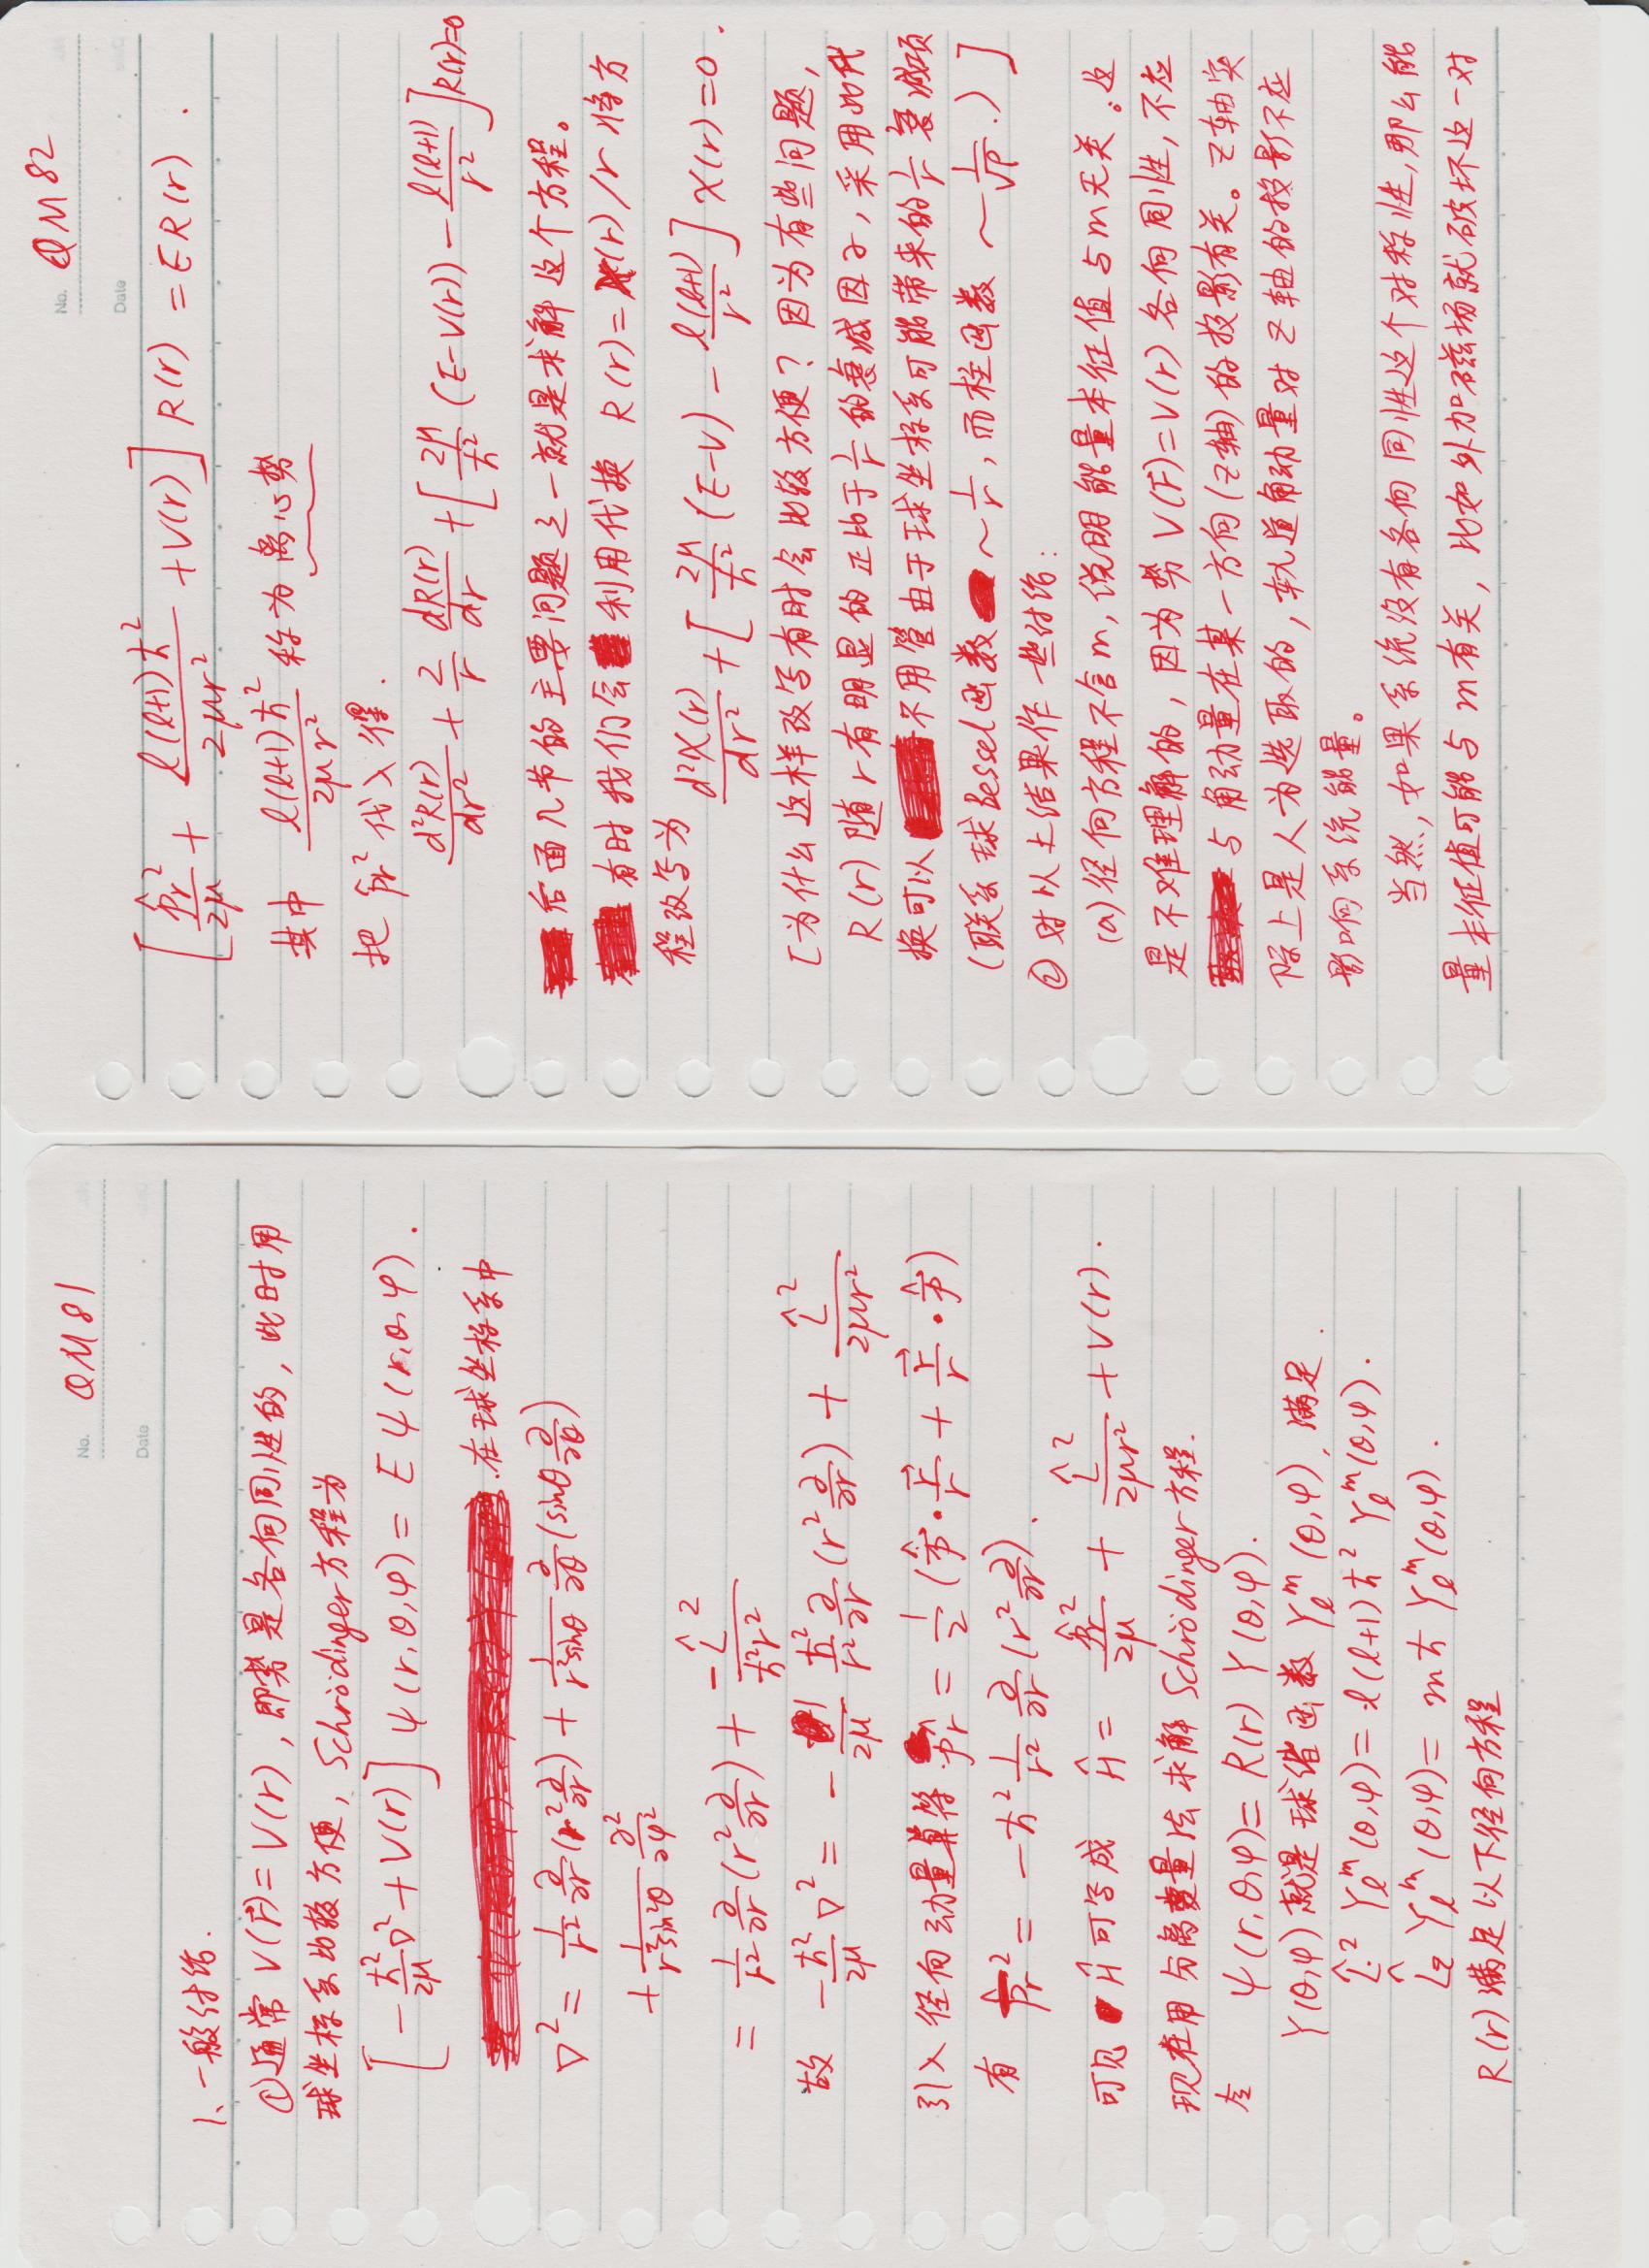 No. QM81
Date
1、一般讨论.
①通常 V(r⃗)=V(r), 即势是各向同性的, 此时用
球坐标系比较方便, Schrödinger方程为
[-ħ²/2μ ∇² + V(r)] ψ(r,θ,φ) = Eψ(r,θ,φ).
在球坐标系中
∇² = 1/r² ∂/∂r (r² ∂/∂r) + 1/(r²sinθ) ∂/∂θ (sinθ ∂/∂θ)
+ 1/(r²sin²θ) ∂²/∂φ²
= 1/r² ∂/∂r (r² ∂/∂r) + -L̂²/(ħ²r²)
故 -ħ²/2μ ∇² = -1/2μ ħ²/r² ∂/∂r (r² ∂/∂r) + L̂²/(2μr²)
引入径向动量算符 p̂r = 1/2 (p⃗̂·r⃗/r + r⃗/r·p⃗̂)
有 p̂r² = -ħ² 1/r² ∂/∂r (r² ∂/∂r).
可见 Ĥ可写成 Ĥ = p̂r²/2μ + L̂²/(2μr²) + V(r).
现在用分离变量法求解 Schrödinger方程.
令 ψ(r,θ,φ) = R(r) Y(θ,φ).
Y(θ,φ)就是球谐函数 Yₗᵐ(θ,φ), 满足.
L̂² Yₗᵐ(θ,φ) = l(l+1)ħ² Yₗᵐ(θ,φ).
L̂z Yₗᵐ(θ,φ) = mħ Yₗᵐ(θ,φ).
R(r)满足以下径向方程
No. QM82
Date
[p̂r²/2μ + l(l+1)ħ²/(2μr²) + V(r)] R(r) = ER(r).
其中 l(l+1)ħ²/(2μr²) 称为离心势
把 p̂r² 代入得.
d²R(r)/dr² + 2/r dR(r)/dr + [2μ/ħ² (E-V(r)) - l(l+1)/r²]R(r)=0
后面几节的主要问题之一就是求解这个方程。
有时我们会利用代换 R(r)=χ(r)/r 将方
程改写为 d²χ(r)/dr² + [2μ/ħ² (E-V) - l(l+1)/r²] χ(r)=0.
[为什么这样改写有时会比较方便? 因为有些问题,
R(r)随r有明显的正比于1/r的衰减因子, 采用此代
换可以不用管由于球坐标系可能带来的1/r衰减项
(联系球Bessel函数 ~1/r, 而柱函数 ~1/√ρ.)]
② 对以上结果作一些讨论:
(a)径向方程不含m, 说明能量本征值与m无关。这
是不难理解的, 因为势V(r⃗)=V(r)各向同性, 不应
与角动量在某一方向(z轴)的投影有关。z轴实
际上是人为选取的, 轨道角动量对z轴的投影不应
影响系统能量。
当然, 如果系统没有各向同性这个对称性, 那么能
量本征值可能与m有关, 比如外加磁场就破坏这一对